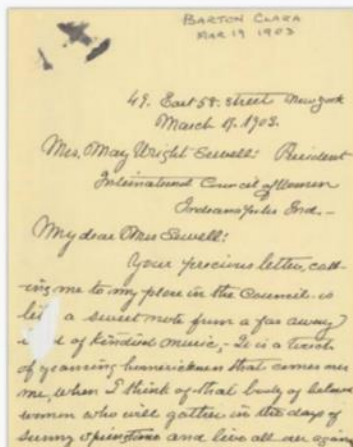 BARTON CLARA
MAR 19 1903
49. East 58. Street New York
March 19. 1903.
Mrs. May Wright Sewell: President
International Council of Women
Indianapolis Ind.—
My dear Mrs Sewell:
Your precious letter, call-
ing me to my place in the Council is
a sweet note from a far away
of kindred music,- It is a touch
of yearning homesickness that comes over
me, when I think of that body of beloved
women who will gather in the days of
sunny springtime and live all over again